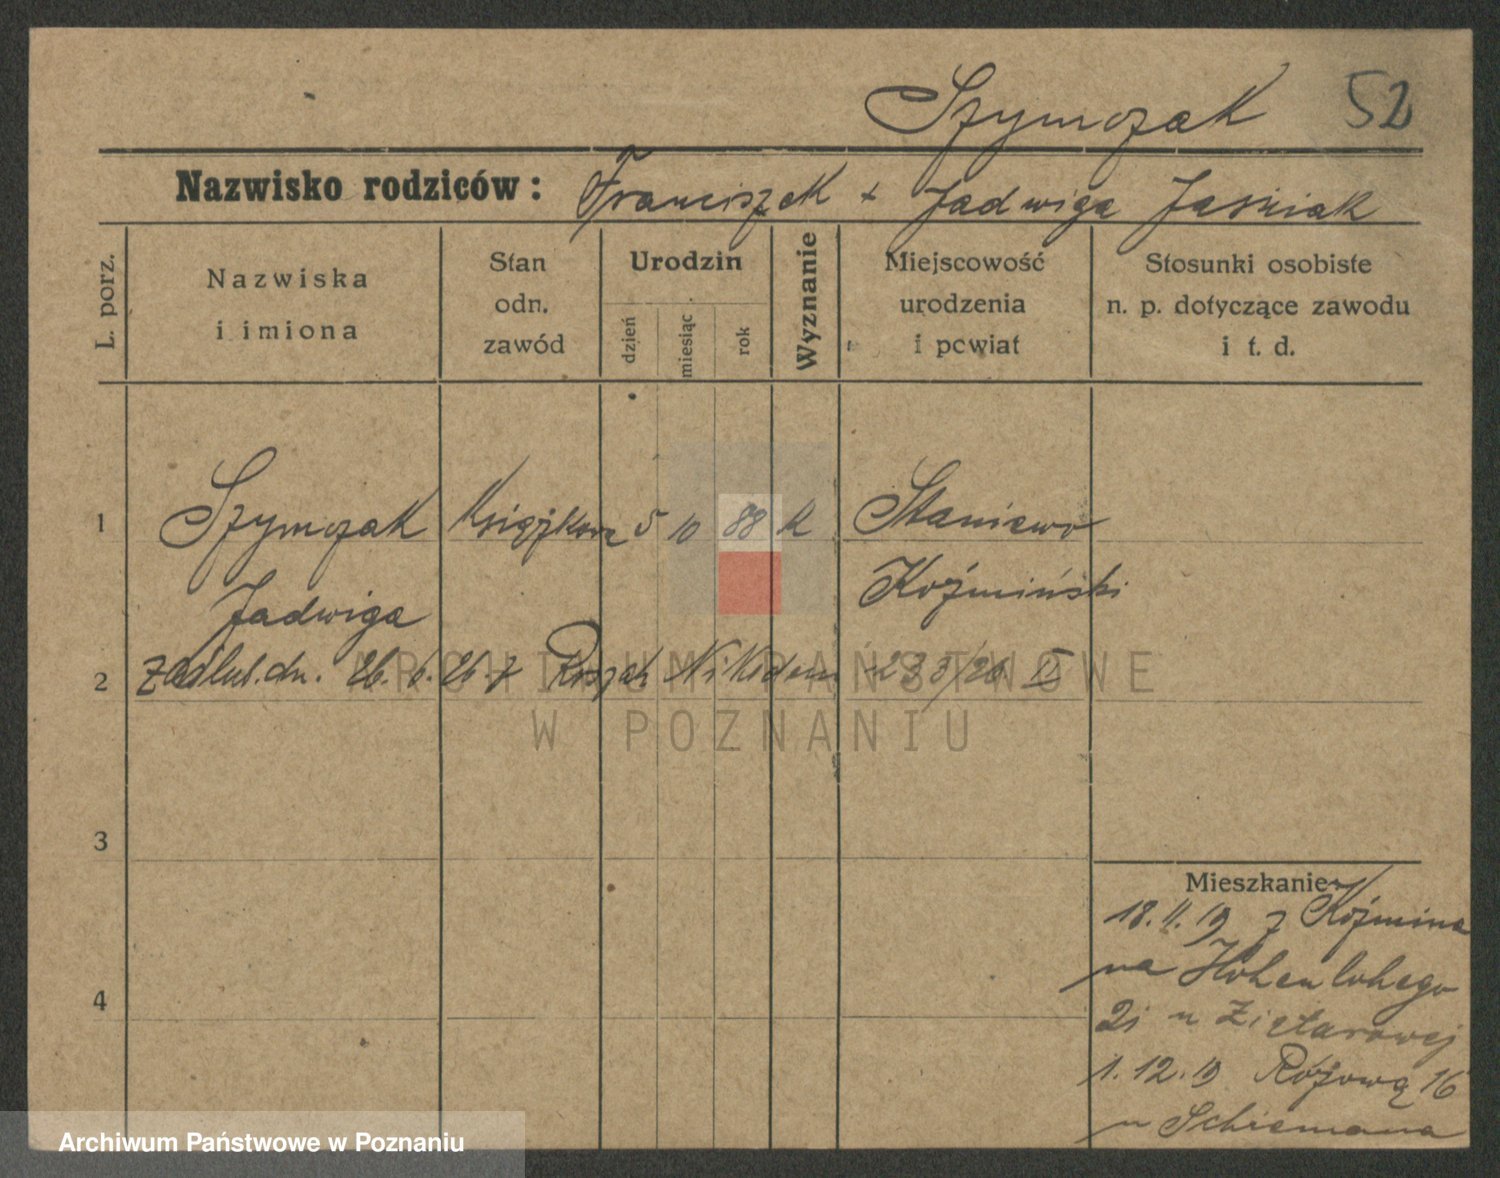 Szymczak 52
Nazwisko rodziców: Franciszek + Jadwiga Jasniak
L. porz.
Nazwiska
i imiona
Stan
odn.
zawód
Urodzin
dzień
miesiąc
rok
Wyznanie
Miejscowość
urodzenia
i powiat
Stosunki osobiste
n. p. dotyczące zawodu
i t. d.
1 Szymczak Książkowa 5 10 88 K Staniewo
Jadwiga Koźmiński
2 zaślub. dn. 26. 6. 26. z Nikodem 233/26 II
ARCHIWUM PAŃSTWOWE
W POZNANIU
3
Mieszkanie
18. 11. 19 z Koźmina
na Hohenlohego
21 u Ziętarowej
4
1. 12. 19 Różowa 16
u Schiemana
Archiwum Państwowe w Poznaniu